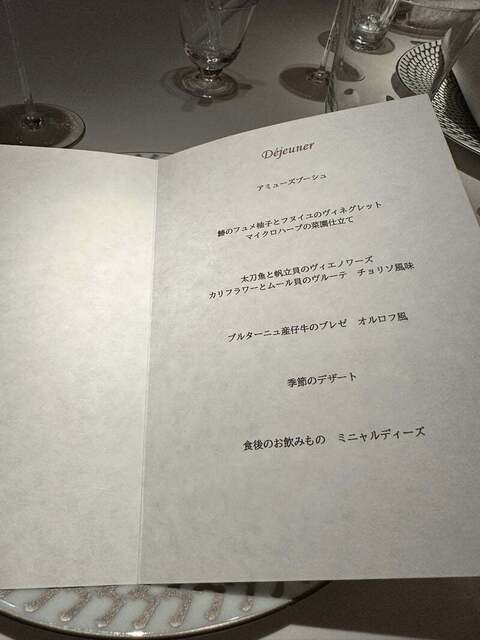 Déjeuner
アミューズブーシュ
鰆のフュメ柚子とフヌイユのヴィネグレット
マイクロハーブの菜園仕立て
太刀魚と帆立貝のヴィエノワーズ
カリフラワーとムール貝のヴルーテ　チョリソ風味
ブルターニュ産仔牛のブレゼ　オルロフ風
季節のデザート
食後のお飲みもの　ミニャルディーズ